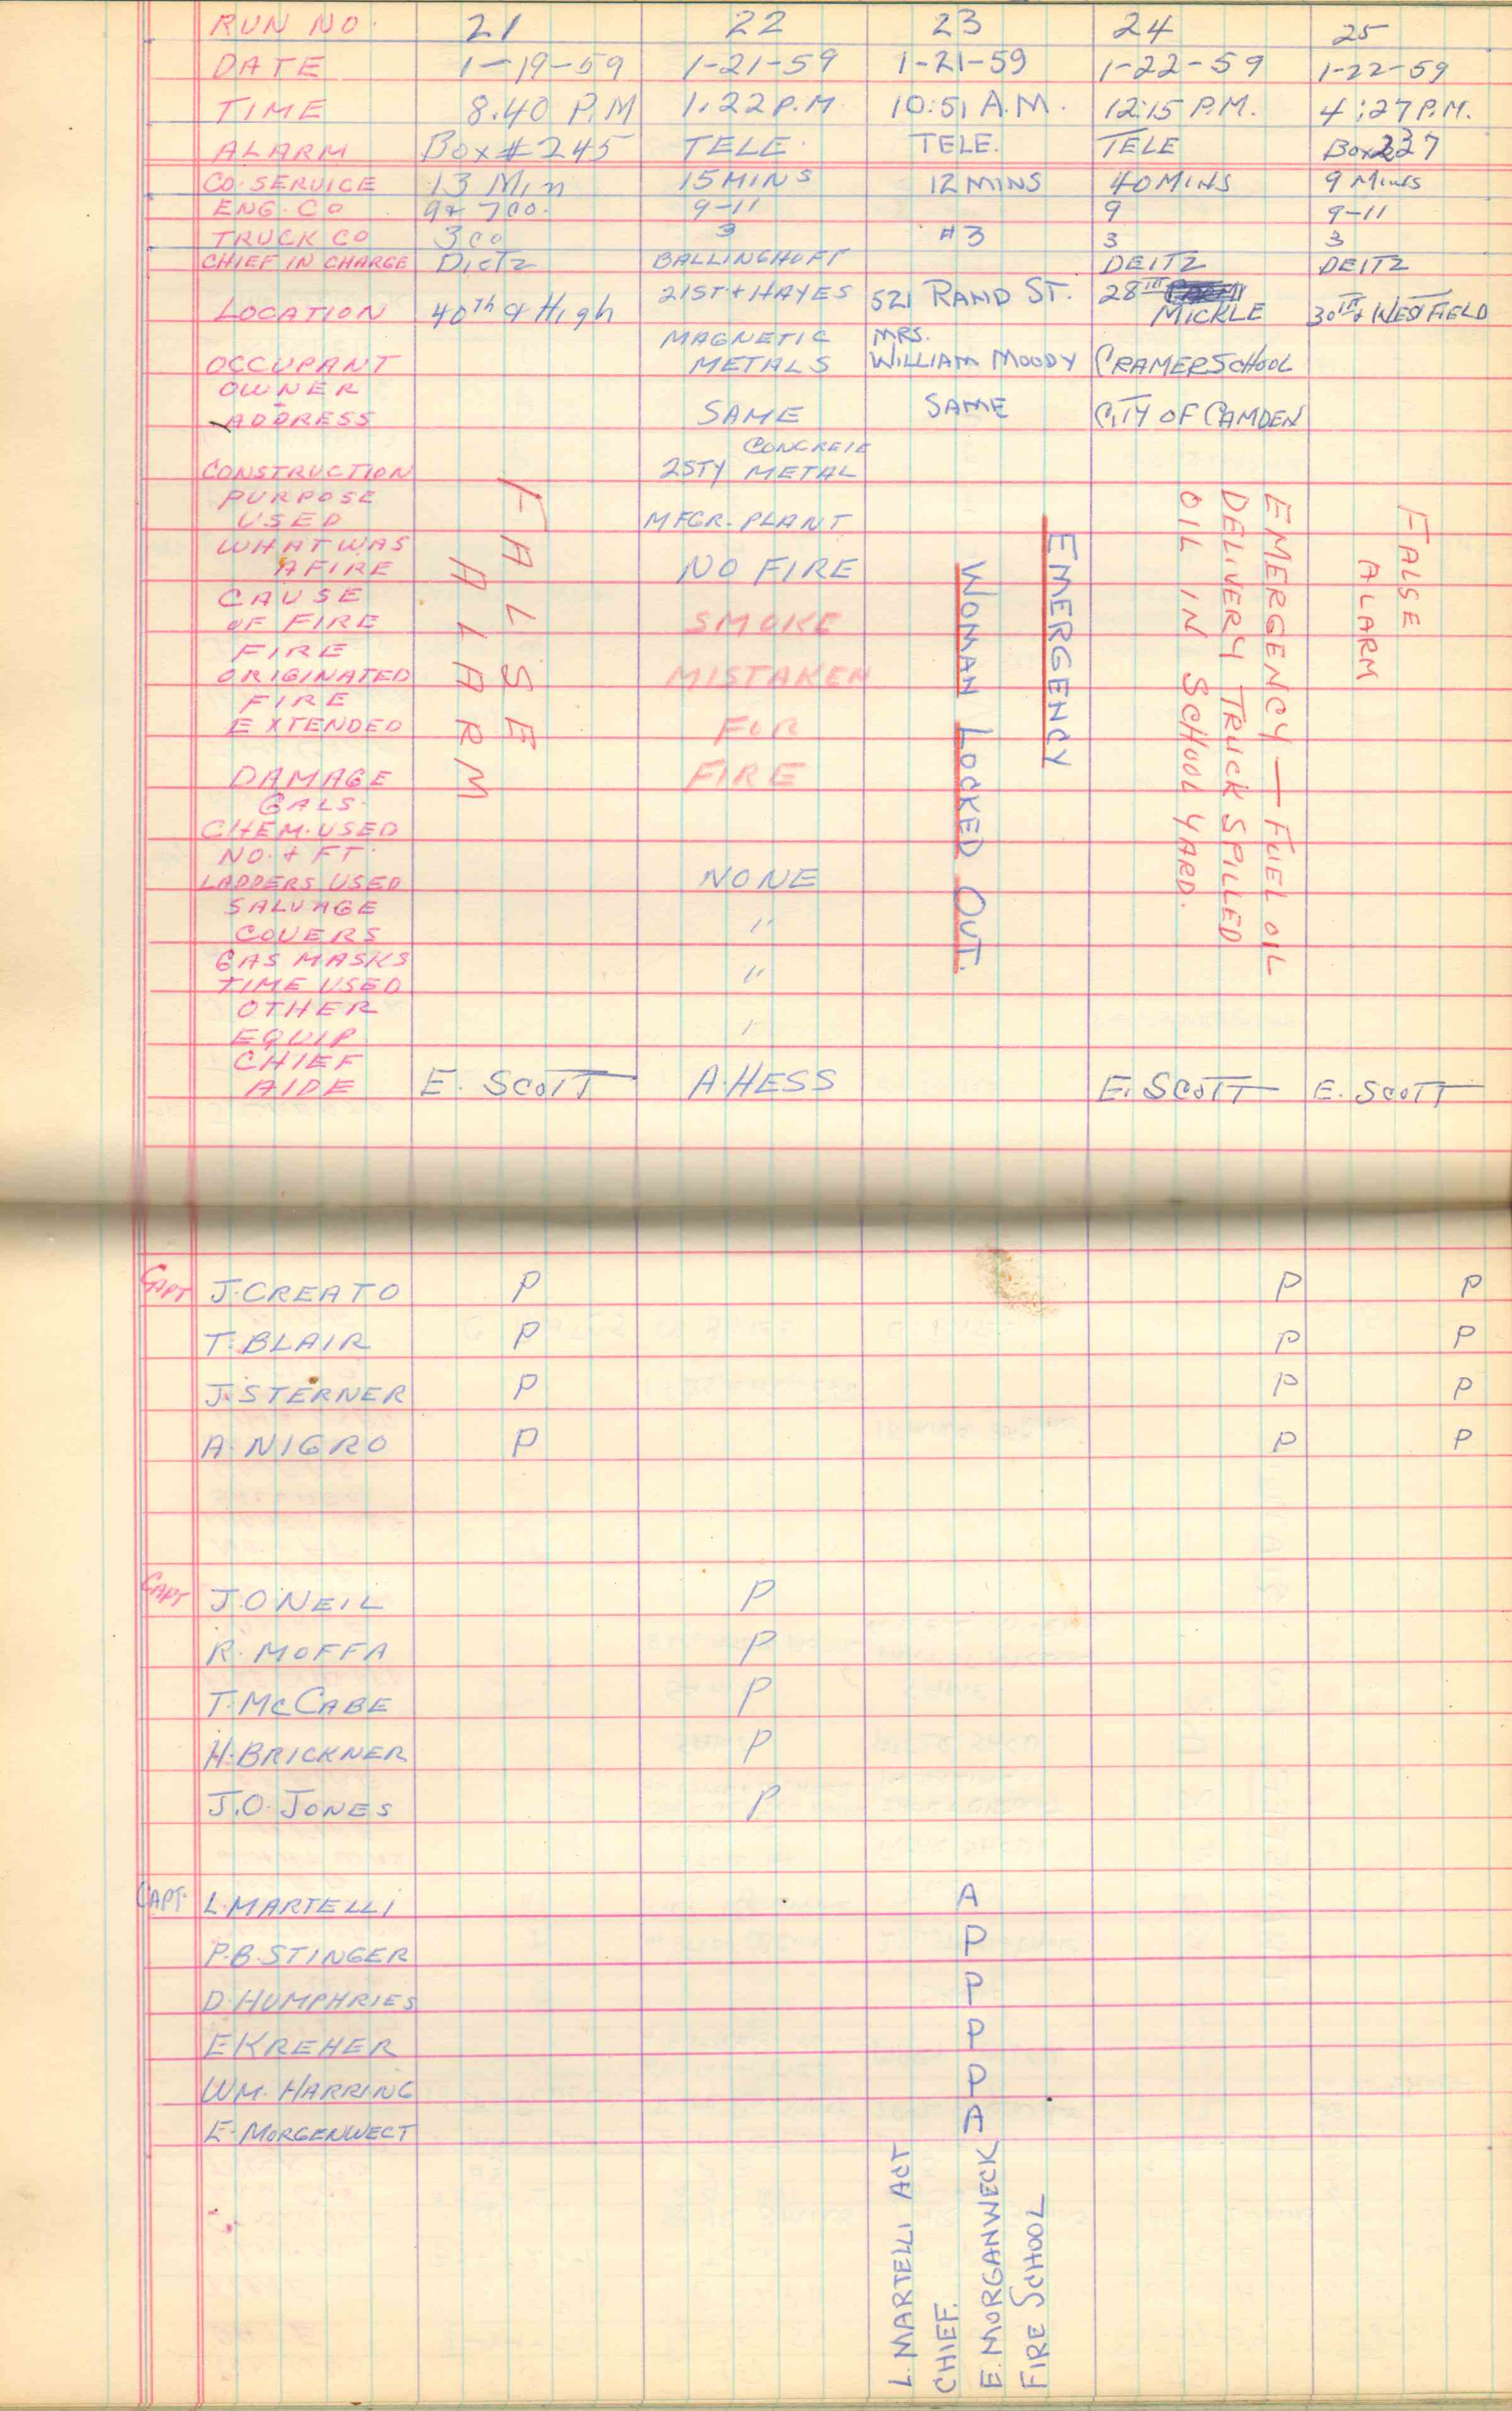 RUN NO. 21 22 23 24 25
DATE 1-19-59 1-21-59 1-21-59 1-22-59 1-22-59
TIME 8.40 P.M 1.22 P.M. 10:51 A.M. 12:15 P.M. 4:27 P.M.
ALARM Box #245 TELE. TELE. TELE Box 237
CO. SERVICE 13 Min 15 MINS 12 MINS 40 MINS 9 Mins
ENG. CO 9+ 7 co. 9-11 9 9-11
TRUCK CO 3 co 3 #3 3 3
CHIEF IN CHARGE Dietz BALLINGHOFF DEITZ DEITZ
LOCATION 40th & High 21ST + HAYES 521 RAND ST. 28TH MICKLE 30TH + WESTFIELD
OCCUPANT MAGNETIC METALS MRS. WILLIAM MOODY CRAMER SCHOOL
OWNER - ADDRESS SAME SAME CITY OF CAMDEN
CONSTRUCTION 2 STY CONCRETE METAL
PURPOSE
USED MFGR. PLANT
WHAT WAS
AFIRE NO FIRE
CAUSE
OF FIRE SMOKE
FIRE
ORIGINATED MISTAKEN
FIRE
EXTENDED FOR
DAMAGE FIRE
GALS.
CHEM. USED
NO. + FT.
LADDERS USED NONE
SALVAGE
COVERS "
GAS MASKS
TIME USED "
OTHER
EQUIP "
CHIEF
AIDE E. SCOTT A. HESS E. SCOTT E. SCOTT
FALSE
ALARM
EMERGENCY
WOMAN LOCKED OUT.
EMERGENCY — FUEL OIL
DELIVERY TRUCK SPILLED
OIL IN SCHOOL YARD.
FALSE
ALARM
CAPT J. CREATO P P P
T. BLAIR P P P
J. STERNER P P P
A. NIGRO P P P
CAPT J. ONEIL P
R. MOFFA P
T. McCABE P
H. BRICKNER P
J.O. JONES P
CAPT. L. MARTELLI A
P.B. STINGER P
D. HUMPHRIES P
E KREHER P
WM. HARRING P
E. MORGENWECT A
L. MARTELLI ACT
CHIEF.
E. MORGANWECK
FIRE SCHOOL